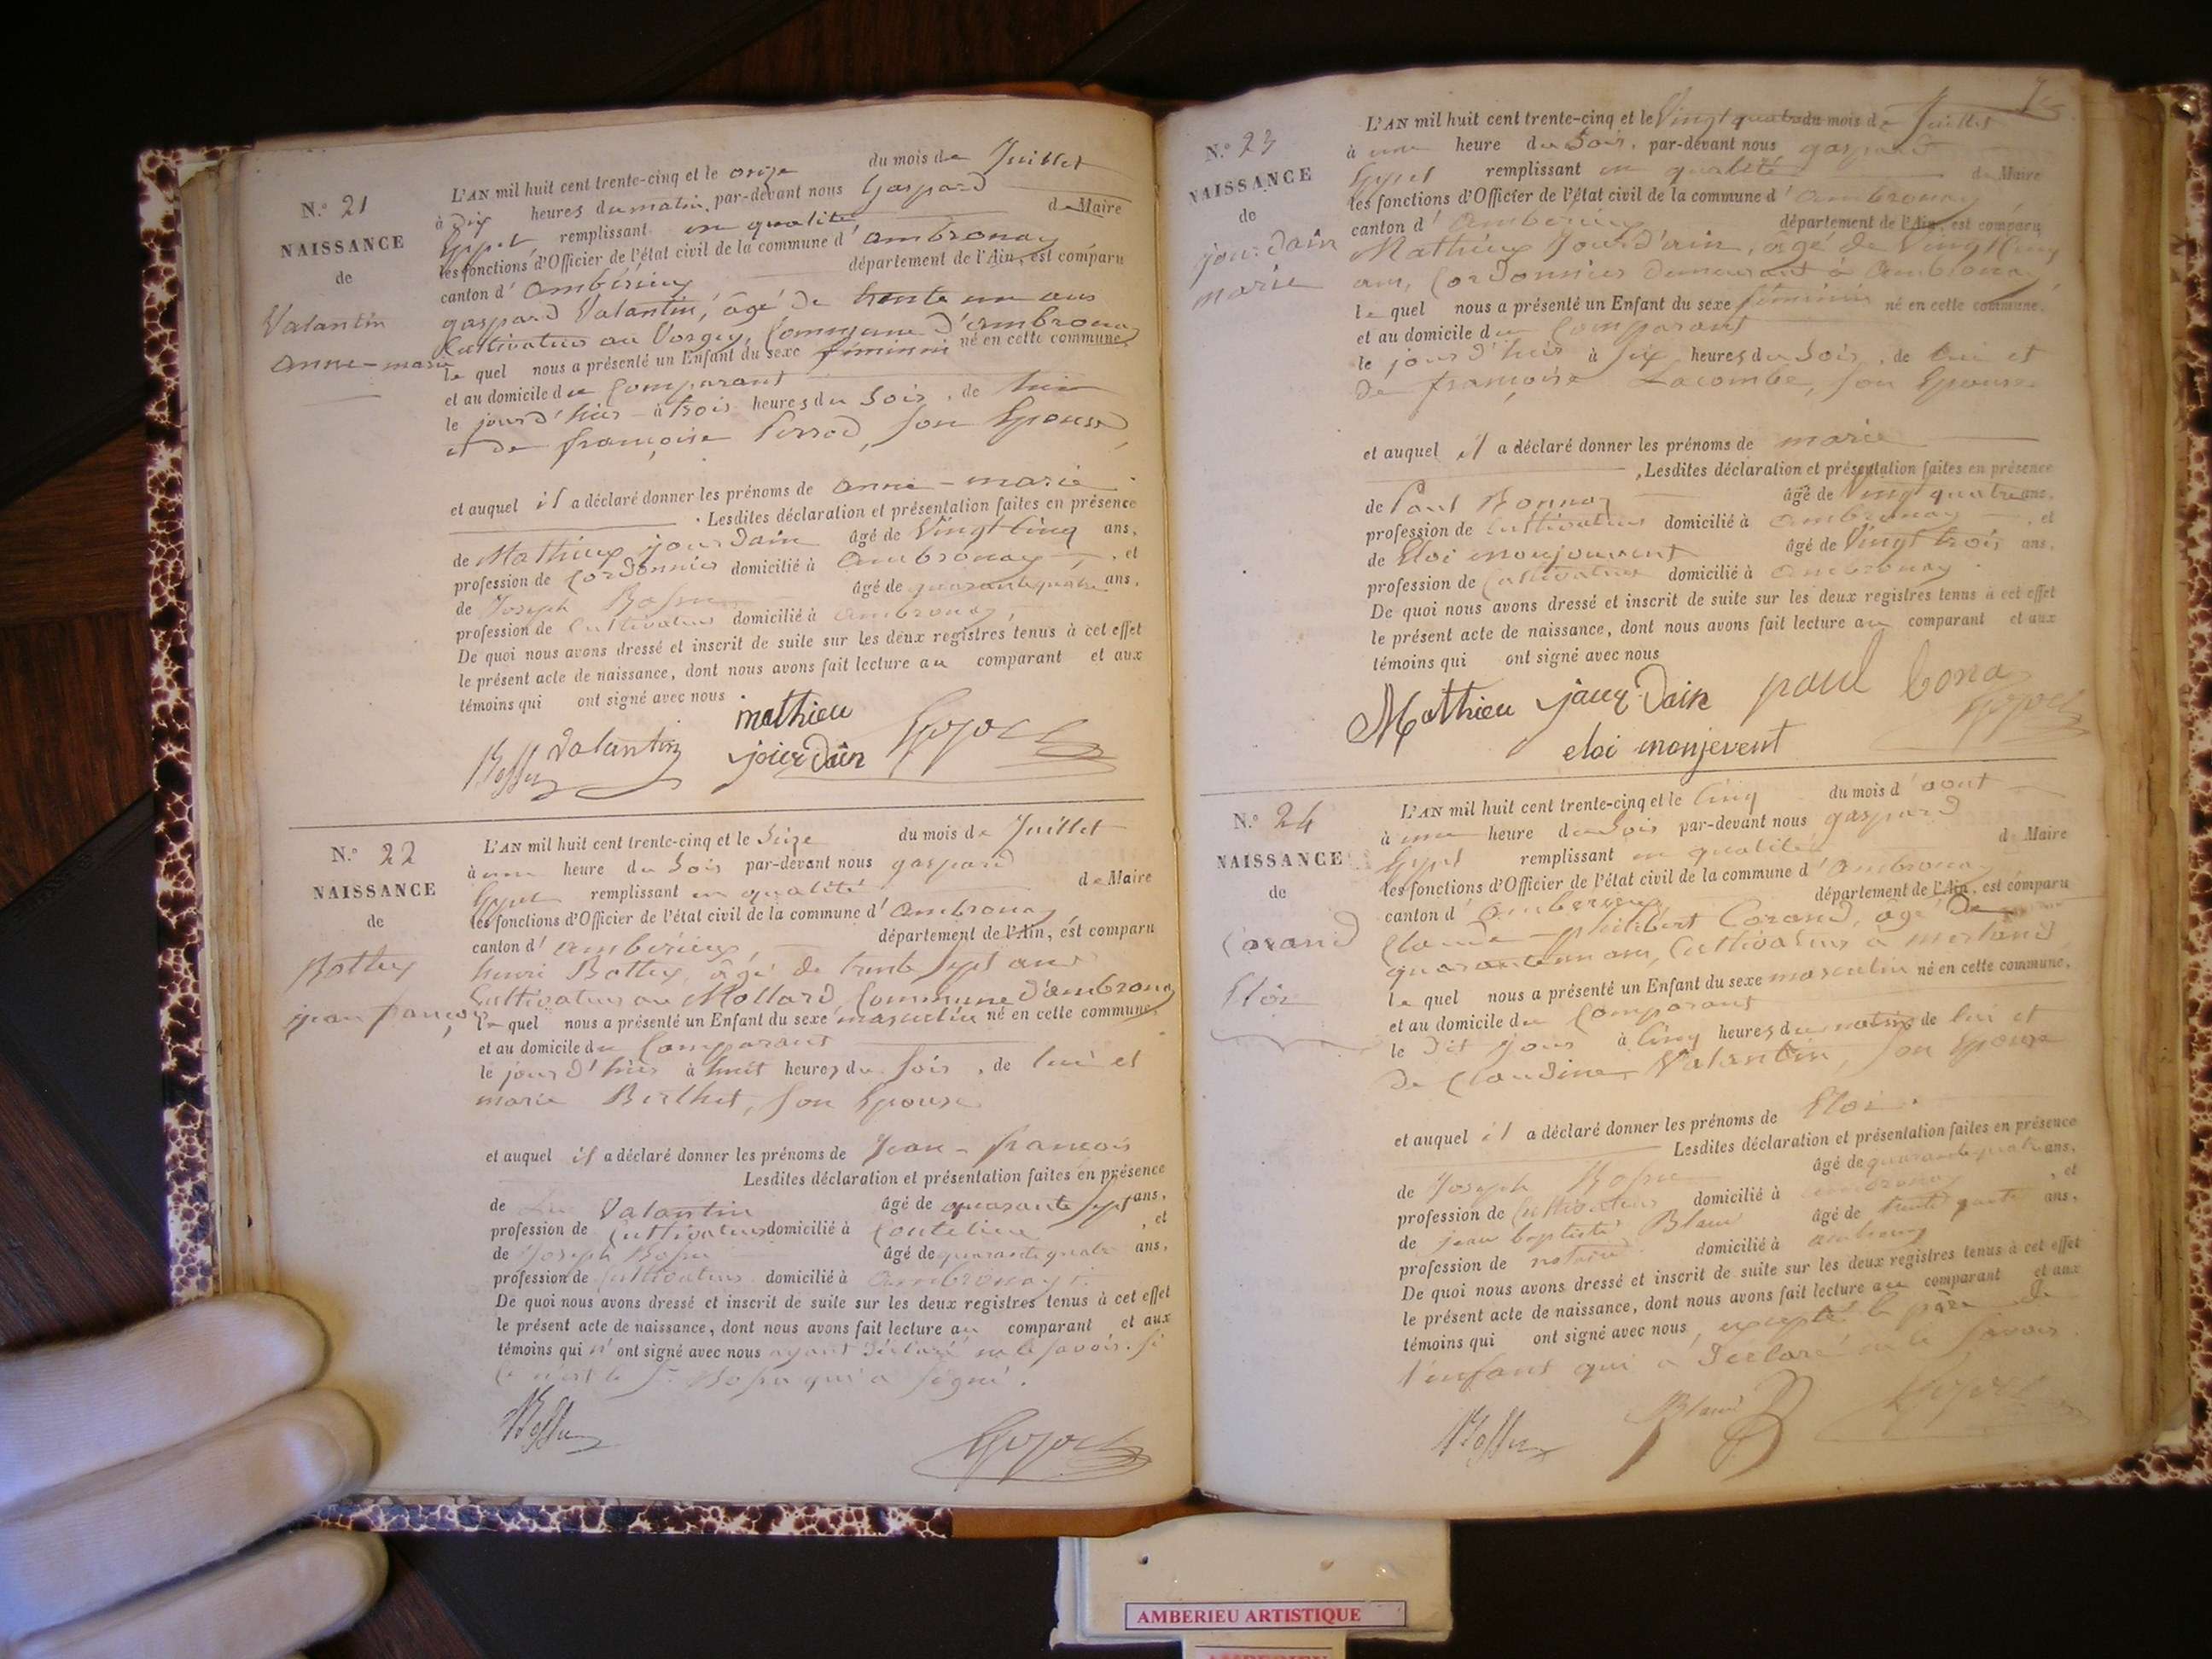 N.° 21
NAISSANCE
de
Valantin
anne-marie
L'AN mil huit cent trente-cinq et le onze du mois de Juillet
à dix heures du matin, par-devant nous Gaspard
remplissant en qualité de Maire
les fonctions d'Officier de l'état civil de la commune d'ambronay
canton d'ambérieux département de l'Ain, est comparu
gaspard Valantin, âgé de trente un ans
Cultivateur au Vorgey, Commune d'ambronay
le quel nous a présenté un Enfant du sexe féminin né en cette commune,
et au domicile du Comparant
le jour d'hier à trois heures du Soir, de lui
et de françoise Perrod, son Epouse,
et auquel il a déclaré donner les prénoms de anne-marie
. Lesdites déclaration et présentation faites en présence
de Mathieux jourdain âgé de Vingt Cinq ans,
profession de Cordonnier domicilié à Ambronay, et
de Joseph Bossu âgé de quarante quatre ans,
profession de Cultivateur domicilié à ambronay,
De quoi nous avons dressé et inscrit de suite sur les deux registres tenus à cet effet
le présent acte de naissance, dont nous avons fait lecture au comparant et aux
témoins qui ont signé avec nous
Bossu valantin mathieu
jourdain
N.° 22
NAISSANCE
de
Bottex
jean françois
L'AN mil huit cent trente-cinq et le Seize du mois de Juillet
à une heure du Soir par-devant nous gaspard
remplissant en qualité de Maire
les fonctions d'Officier de l'état civil de la commune d'Ambronay
canton d'ambérieux, département de l'Ain, est comparu
henri Bottex, âgé de trente Sept ans
Cultivateur au Mollard, Commune d'ambronay
le quel nous a présenté un Enfant du sexe masculin né en cette commune,
et au domicile du Comparant
le jour d'hier à huit heures du soir, de lui et
marie Berthet, son Epouse
et auquel il a déclaré donner les prénoms de Jean-françois
Lesdites déclaration et présentation faites en présence
de Valantin âgé de quarante Sept ans,
profession de Cultivateur domicilié à Coutelieu, et
de Joseph Bossu âgé de quarante quatre ans,
profession de Cultivateur domicilié à Ambronay.
De quoi nous avons dressé et inscrit de suite sur les deux registres tenus à cet effet
le présent acte de naissance, dont nous avons fait lecture au comparant et aux
témoins qui n'ont signé avec nous ayant déclaré ne le savoir. si
ce n'est le Sr. Bossu qui a signé.
Bossu
N.° 23
NAISSANCE
de
jourdain
marie
L'AN mil huit cent trente-cinq et le Vingt quatre du mois de Juillet
à une heure du Soir, par-devant nous gaspard
remplissant en qualité de Maire
les fonctions d'Officier de l'état civil de la commune d'Ambronay
canton d'Ambérieux département de l'Ain, est comparu
Mathieux Jourd'ain, âgé de Vingt Cinq
ans, Cordonnier demeurant à Ambronay
le quel nous a présenté un Enfant du sexe féminin né en cette commune,
et au domicile du Comparant
le jour d'hier à six heures du Soir, de lui et
de françoise Lacombe, son Epouse
et auquel il a déclaré donner les prénoms de marie
, Lesdites déclaration et présentation faites en présence
de Paul Bonnaz âgé de Vingt quatre ans,
profession de Cultivateur domicilié à Ambronay, et
de Eloi monjouvent âgé de Vingt trois ans,
profession de Cultivateur domicilié à Ambronay.
De quoi nous avons dressé et inscrit de suite sur les deux registres tenus à cet effet
le présent acte de naissance, dont nous avons fait lecture au comparant et aux
témoins qui ont signé avec nous
Mathieu jourdain paul bona
eloi monjevent
N.° 24
NAISSANCE
de
Corand
Eloi
L'AN mil huit cent trente-cinq et le Cinq du mois d'aout
à une heure du Soir par-devant nous gaspard
remplissant en qualité de Maire
les fonctions d'Officier de l'état civil de la commune d'Ambronay
canton d'Amberieux département de l'Ain, est comparu
Claude-philibert Corand, âgé de
quarante un ans, Cultivateur à
le quel nous a présenté un Enfant du sexe masculin né en cette commune,
et au domicile du Comparant
le dit jour à Cinq heures du matin, de lui et
de Claudine Valantin, son Epouse
et auquel il a déclaré donner les prénoms de Eloi.
Lesdites déclaration et présentation faites en présence
de Joseph Bossu âgé de quarante quatre ans,
profession de Cultivateur domicilié à ambronay, et
de jean baptiste Blanc âgé de trente quatre ans,
profession de notaire domicilié à ambronay
De quoi nous avons dressé et inscrit de suite sur les deux registres tenus à cet effet
le présent acte de naissance, dont nous avons fait lecture au comparant et aux
témoins qui ont signé avec nous, excepté le père de
l'enfant qui a déclaré ne le savoir.
Bossu Blanc
AMBERIEU ARTISTIQUE